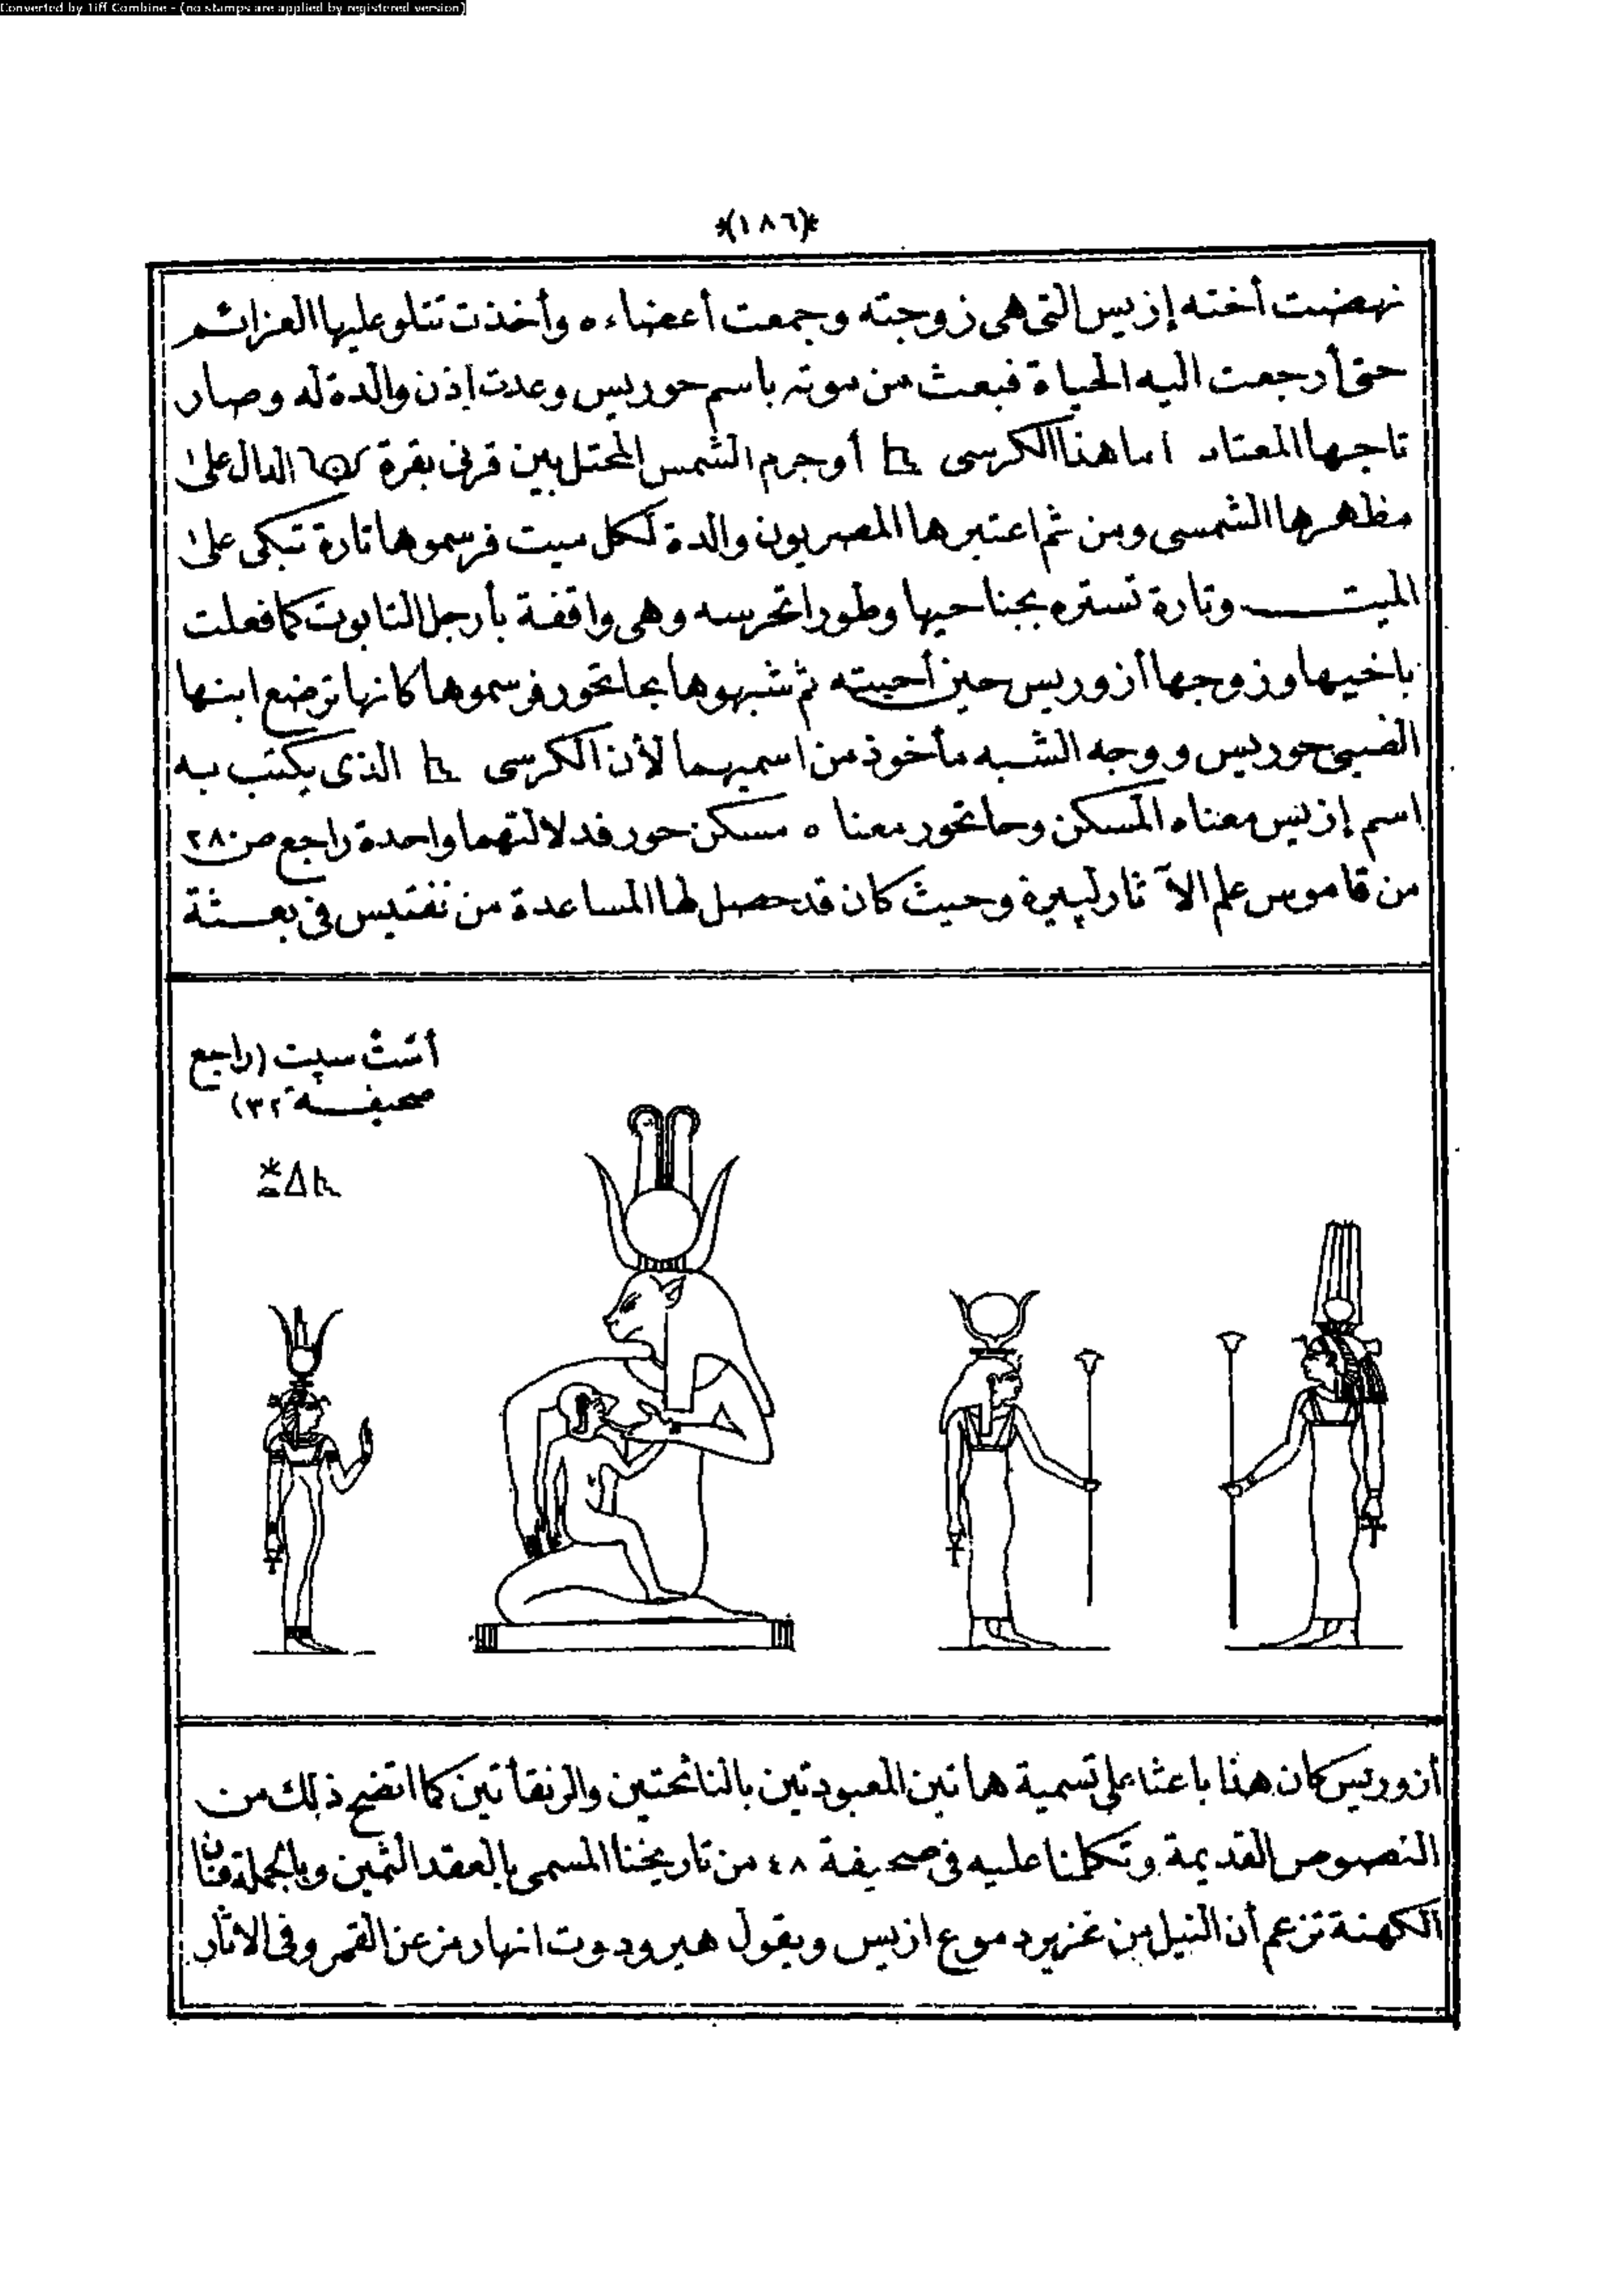 Converted by Tiff Combine - (no stamps are applied by registered version)
*(١٨٦)*
نهضت أخته إزيس التى هى زوجته وجمعت أعضاءه وأخذت تتلو عليها العزائم
حتى أرجعت اليه الحياة فبعث من موته باسم حوريس وعدت إذن والدة له وصار
تاجها المعتاد اما هذا الكرسى 𓊨 أو جرم الشمس المحتل بين قرنى بقرة الدال على
مظهرها الشمسى ومن ثم اعتبرها المصريون والدة لكل ميت فرسموها تارة تبكى على
الميت وتارة تستره بجناحيها وطورا تحرسه وهى واقفة بأرجل التابوت كما فعلت
باخيها وزوجها أزوريس حين أحيته ثم شبهوها بحاتحور فرسموها كانها ترضع ابنها
الصبى حوريس ووجه الشبه مأخوذ من اسميهما لأن الكرسى 𓊨 الذى يكتب به
اسم إزيس معناه المسكن وحاتحور معناه مسكن حور فدلالتهما واحدة راجع ص ٢٨٠
من قاموس علم الآثار لپيره وحيث كان قد حصل لها المساعدة من نفتيس فى بعثة
أست سپت (راجع
صحيفة ٣٢)
أزوريس كان هذا باعثا على تسمية هاتين المعبودتين بالنائحتين والرنقأتين كما اتضح ذلك من
النصوص القديمة وتكلمنا عليه فى صحيفة ٤٨ من تاريخنا المسمى بالعقد الثمين وبالجملة فان
الكهنة تزعم أن النيل من غزير دموع ازيس ويقول هيرودوت انها رمز عن القمر وفى الاثار